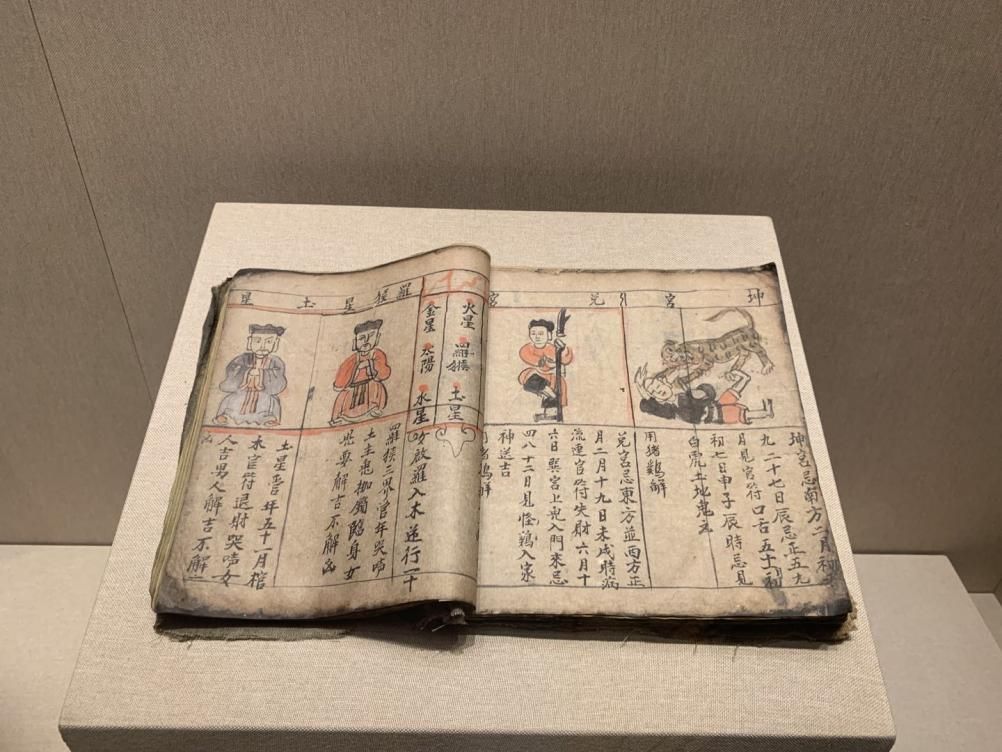 坤宮
坤宮忌南方二月初
九二十七日辰忌正五九
月見官符口舌五十一初
初七日申子辰時忌見
白虎土地鬼
用猪雞解
兌宮
兌宮忌東方並西方正
月二月十九日未戌時病
流連官符失財六月十
六日巽宮上鬼入門來忌
四八十二日見怪鵶入家
神送吉
火星 羅猴 土星
金星 太陽 水星
啟羅入木逆行一十
羅猴星
羅猴二界官年哭啼
土主患枷鎖臨身女
要解吉不解凶
土星
土星年五十一月棺
木官符退財哭啼女
人吉男人解吉不解
凶